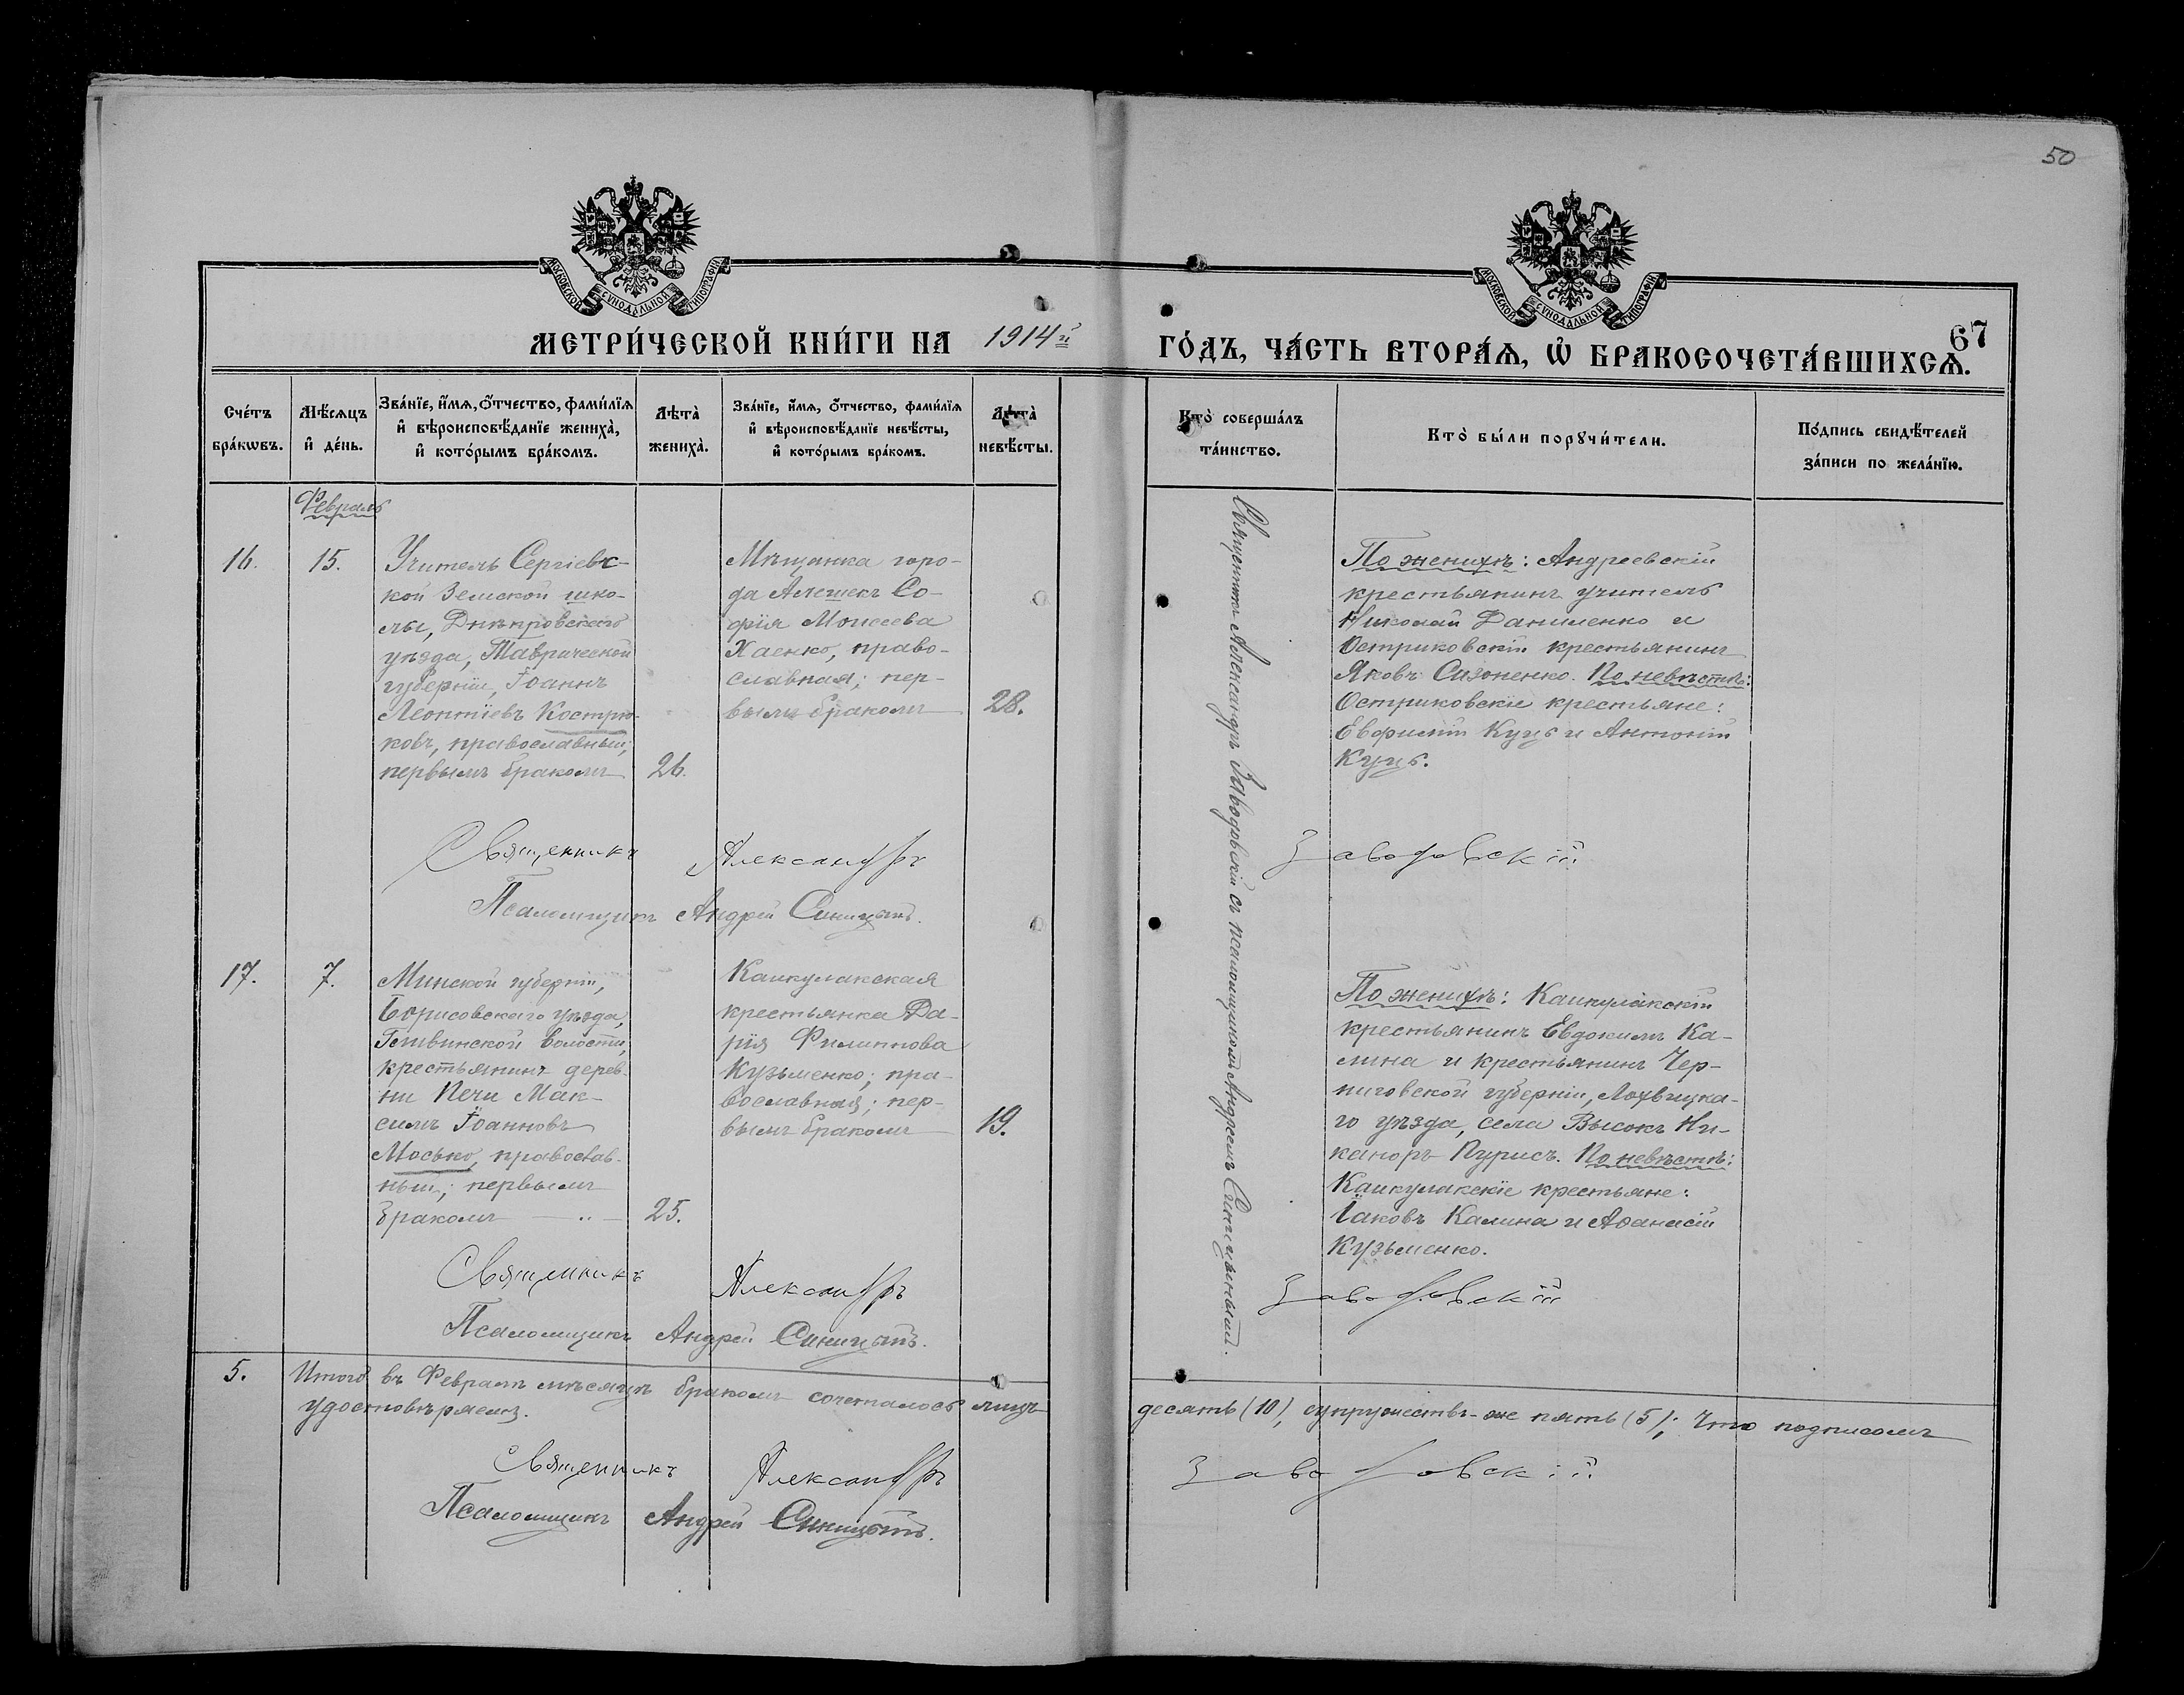 50
МОСКОВСКОЙ СѴНОДАЛЬНОЙ ТИПОГРАФІИ
МОСКОВСКОЙ СѴНОДАЛЬНОЙ ТИПОГРАФІИ
МЕТРИ́ЧЕСКОЙ КНИ́ГИ НА 1914й
ГО́ДЪ, ЧА́СТЬ ВТОРА́Я, Ѡ҆ БРАКОСОЧЕТА́ВШИХСѦ.
67
Сче́тъ
бра́кѡвъ.
Мѣ́сѧцъ
и҆ де́нь.
Зва́нїе, и҆́мѧ, ѻ҆́тчество, фами́лїѧ
и҆ вѣроисповѣ́данїе жениха̀,
и҆ кото́рымъ бра́комъ.
Лѣта̀
жениха̀.
Зва́нїе, и҆́мѧ, ѻ҆́тчество, фами́лїѧ
и҆ вѣроисповѣ́данїе невѣ́сты,
и҆ кото́рымъ бра́комъ.
Лѣта̀
невѣ́сты.
Кто̀ соверша́лъ
та́инство.
Кто̀ бы́ли порꙋчи́тели.
По́дпись свидѣ́телей
за́писи по жела́нїю.
Февраль
16.
15.
Учитель Сергіевс-
кой Земской шко-
лы, Днѣпровскаго
уѣзда, Таврической
губерніи, Іоаннъ
Леонтіевъ Костри-
ковъ, православный;
первымъ бракомъ
26.
Мѣщанка горо-
да Алешекъ Со-
фія Моисеева
Хаенко, право-
славная; пер-
вымъ бракомъ
28.
Священникъ Александръ Заводовскій съ псаломщикомъ Андреемъ Синицынымъ.
По женихѣ: Андреевскій
крестьянинъ учитель
Николай Даниленко и
Остриковскій крестьянинъ
Яковъ Сизоненко. По невѣстѣ:
Остриковскіе крестьяне:
Евфимій Куць и Антоній
Куць.
Священникъ Александръ Заводовскій
Псаломщикъ Андрей Синицынъ.
17.
7.
Минской губерніи,
Борисовскаго уѣзда,
волости,
крестьянинъ дерев-
ни Печи Мак-
симъ Іоанновъ
Мосько, православ-
ный; первымъ
бракомъ
25.
Каикулакская
крестьянка Да-
рія Филиппова
Кузьменко; пра-
вославная; пер-
вымъ бракомъ
19.
По женихѣ: Каикулакскій
крестьянинъ Евдокимъ Ка-
лина и крестьянинъ Чер-
ниговской губерніи, Лохвицка-
го уѣзда, села Высокъ Ни-
каноръ Пурисъ. По невѣстѣ:
Каикулакскіе крестьяне:
Іаковъ Калина и Аѳанасій
Кузьменко.
Священникъ Александръ Заводовскій
Псаломщикъ Андрей Синицынъ.
5.
Итого въ Февралѣ мѣсяцѣ бракомъ сочеталось лицъ десять (10), супружествъ-же пять (5); что подписомъ
удостовѣряемъ.
Священникъ Александръ Заводовскій
Псаломщикъ Андрей Синицынъ.